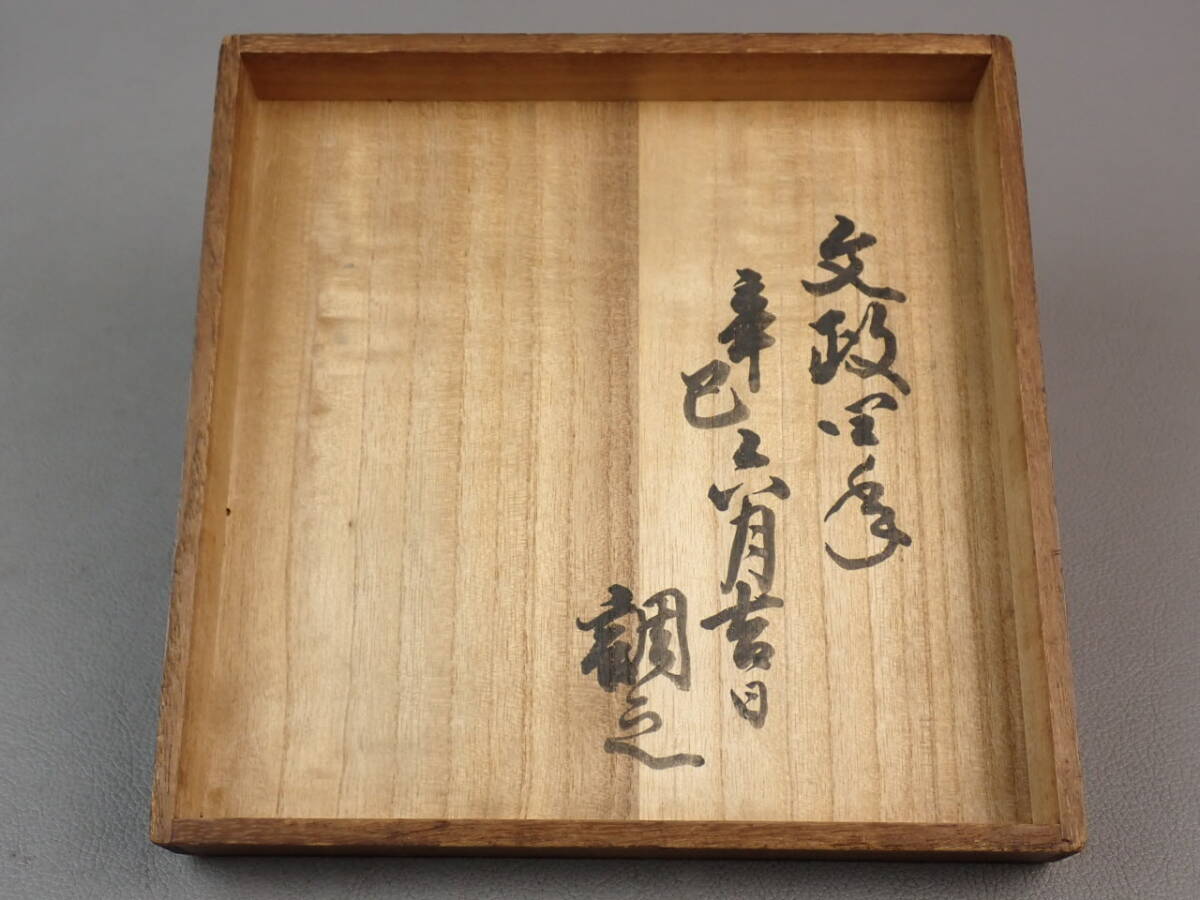 文政四年
辛巳六月吉日
調之